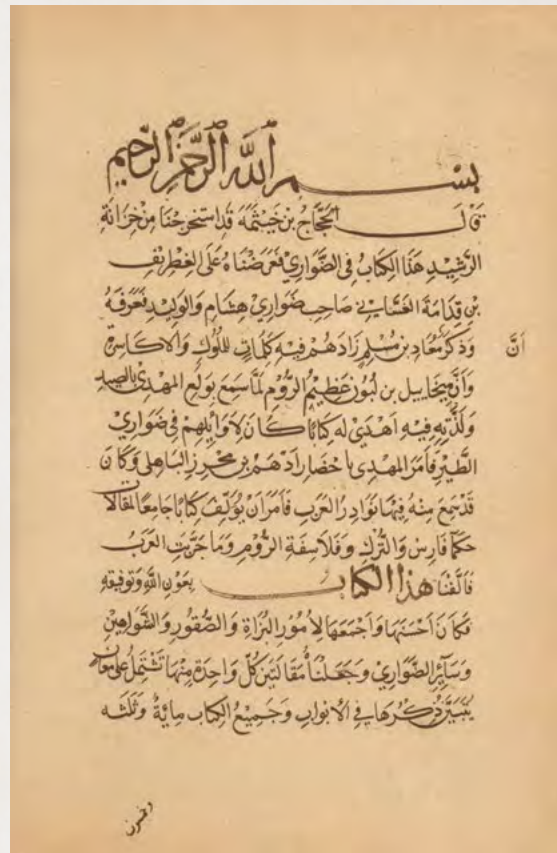 بسم الله الرحمن الرحيم
قال الحجاج بن خيثمة قد استخرجنا من خزانة
الرشيد هذا الكتاب في الضواري فعرضناه على الغطريف
بن قدامة الغساني صاحب ضواري هشام والوليد فعرفه
وذكر معاد بن مسلم زادهم فيه كلمات للملوك والاكاسرة
أن
وأن ميخاييل بن لبون عظيم الروم لما سمع بولع المهدي بالصيد
ولذته فيه اهدي له كتابا كان لاوايلهم في ضواري
الطير فأمر المهدي باحضار ادهم بن محرز الباهلي وكان
قد سمع منه فيها نوادر العرب فأمر أن يؤلف كتابا جامعا لمقالات
حكما فارس والترك وفلاسفة الروم وما جربت العرب
فألفنا هذا الكتاب بعون الله وتوفيقه
فكان احسنها واجمعها لأمور البزاة والصقور والشواهين
وسائر الضواري وجعلنا مقالتين كل واحدة منها تشتمل على معان
يتبين ذكرها في الابواب وجميع الكتاب مائة وثلثه